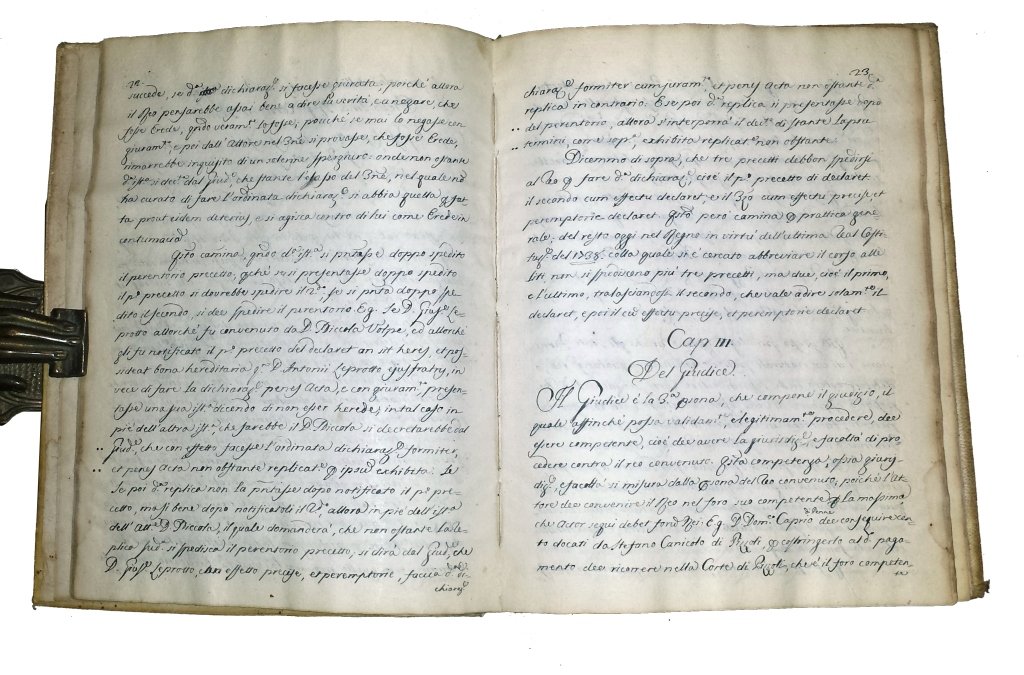 succede, se d.ª dichiaraz.e si facesse giurata, perché allora
il Reo penserebbe assai bene a dire la verità, e a negare, che
fosse Erede, q̃ndo veram.te lo fosse; poiché se mai lo negasse con
giuram.to, e poi dall'Attore nel 3ne si provasse, che fosse Erede,
rimarrebbe inquisito di un solenne spergiuro: onde non ostante
d.ª ist.ª si dec.ta dal Giud.e, che stante l'elapso del 3ne, nel quale nõ
ha curato di fare l'ordinata dichiaraz.e si abbia questa p fat
ta prout eidem deterius, e si agisca contro di lui come Erede in
contumacia
Q̃sto camina, q̃ndo d.ª ist.ª si p̃ntasse doppo spedito
il perentorio precetto, p̃ché se si presentasse doppo spedito
il p.º precetto si dovrebbe spedire il 2.º, se si p̃nta doppo spe
dito il secondo, si dee spedire il perentorio. E.g. Se D. Gius.e Le=
protto allorché fu convenuto da D. Niccola Volpe, ed allorché
gli fu notificato il p.º precetto del declaret an sit heres, et pos=
sideat bona hereditaria q.m D. Antonii Leprotto ejus fratris, in
vece di fare la dichiaraz.e penes Acta, e con giuram.to, presen=
tasse una sua ist.ª dicendo di non esser herede; in tal caso in
pié dell'altra ist.ª che farebbe il D. Niccola si decretarebbe dal
Giud.e, che con effetto facesse l'ordinata dichiaraz.e formiter,
et penes Acta non ostante replicat.e p ipsum exhibita. Se
Se poi d.ª replica non la p̃ntasse dopo notificato il p.º pre=
cetto, ma sì bene dopo notificatoli il 2.º, allora in pié dell'ista
dell'Att.e D. Niccola, il quale domanderà, che non ostante la re=
plica sud.ª si spedisca il perentorio precetto, si dirà dal Giud.e, che
D. Gius.e Leprotto, cum effetto precise, et peremptorie, faccia d.ª di=
chiaraz.e
23.
chiaraz.e formiter cum juram.to, et penes Acta non ostante d.ª
replica in contrario. E se poi d.ª replica si presentasse dopo
del perentorio, allora s'interporrà il dec.to di stante lapsu
termini, come sop.ª, exhibita replicat.e non ostante.
Dicemmo di sopra, che tre precetti debbon spedirsi
al Reo p fare d.ª dichiaraz.e, cioè il p.º precetto di declaret
il secondo cum effectu declaret, e il 3zo cum effectu precise, et
peremptorie declaret. Q̃sto però camina p prattica gene
rale; del resto oggi nel Regno in virtù dell'ultima Real Costi
tuz.e del 1738. colla quale si è cercato abbreviare il corso alle
liti non si spediscono più tre precetti, ma due, cioè il primo,
e l'ultimo, tralasciandosi il secondo, che vale a dire solam.te il
declaret, e poi il cũ effectu precise, et peremptorie declaret
Cap III.
Del Giudice.
Il Giudice è la 3.ª p̃sona, che compone il giudizio, il
quale affinché possa validam.te, e legitimam.te procedere, dee
essere competente, cioè dee avere la giurisdiz.e, e facoltà di pro
cedere contro il reo convenuto. Q̃sta competenza, ossia giuris=
diz.e, e facoltà si misura dalla p̃sona del Reo convenuto, poiché l'At
tore dee convenire il Reo nel foro suo competente p la massima
che Actor sequi debet forũ Rei. E.g. D. Dom.co Caprio dee conseguire cen
to docati da Stefano Canicolo di Pozzoli, p costringerlo al d.º paga=
mento dee ricorrere nella Corte di Pozzoli, che è il foro competen=
te